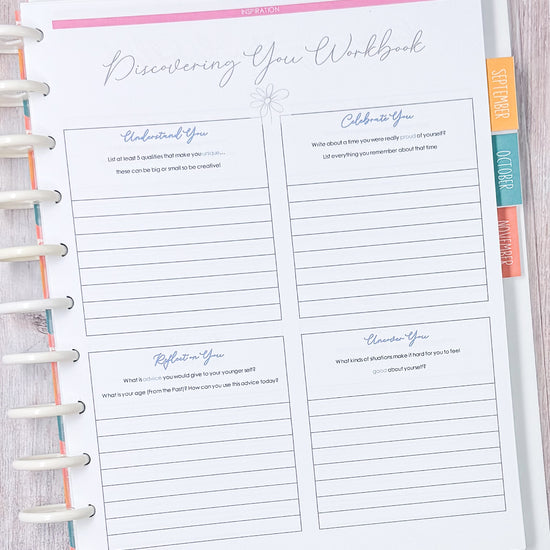 INSPIRATION
Discovering You Workbook
Understand You
List at least 5 qualities that make you unique...
these can be big or small so be creative!
Celebrate You
Write about a time you were really proud of yourself?
List everything you remember about that time
Reflect on You
What is advice you would give to your younger self?
What is your age (From the Past)? How can you use this advice today?
Uncover You
What kinds of situations make it hard for you to feel
good about yourself?
SEPTEMBER
OCTOBER
NOVEMBER